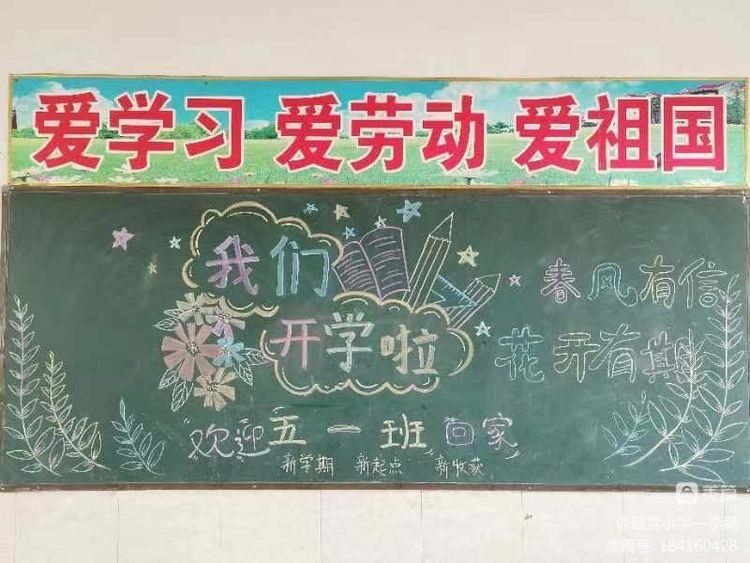 爱学习 爱劳动 爱祖国
我们
开学啦
春风有信
花开有期
欢迎五一班回家
新学期 新起点 新收获
美篇
美篇号 184160428